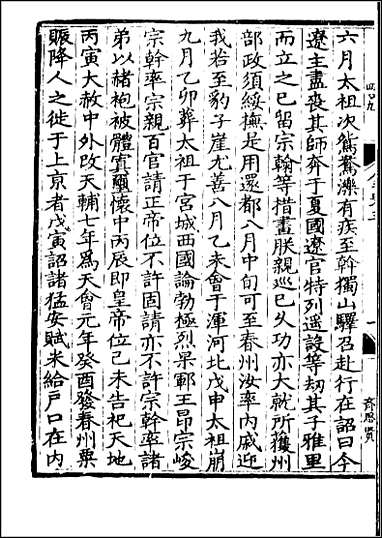 六月太祖次鴛鴦濼有疾至斡獨山驛召赴行在詔曰今
遼主盡喪其師奔于夏國遼官特列遥設等劫其子雅里
而立之已留宗翰等措畫朕親巡已久功亦大就所獲州
部政須綏撫是用還都八月中旬可至春州汝率内戚迎
我若至豹子崖尤善八月乙未會于渾河北戊申太祖崩
九月乙卯葬太祖于宫城西國論勃極烈杲鄆王昂宗峻
宗幹率宗親百官請正帝位不許固請亦不許宗幹率諸
弟以赭袍被體寘璽懷中丙辰即皇帝位己未告祀天地
丙寅大赦中外改天輔七年爲天會元年癸酉發春州粟
賑降人之徙于上京者戊寅詔諸猛安賦米給戶口在内